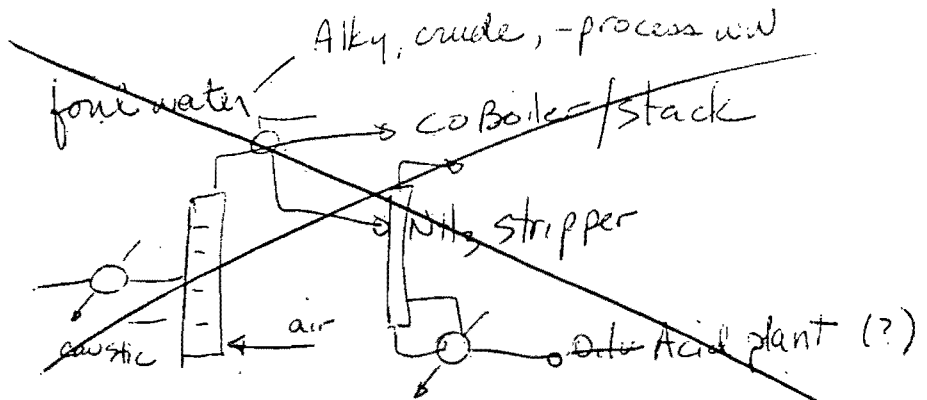 Alky, crude, - process
water
CO Boiler/stack
NH3 stripper
air
caustic
Acid plant (?)